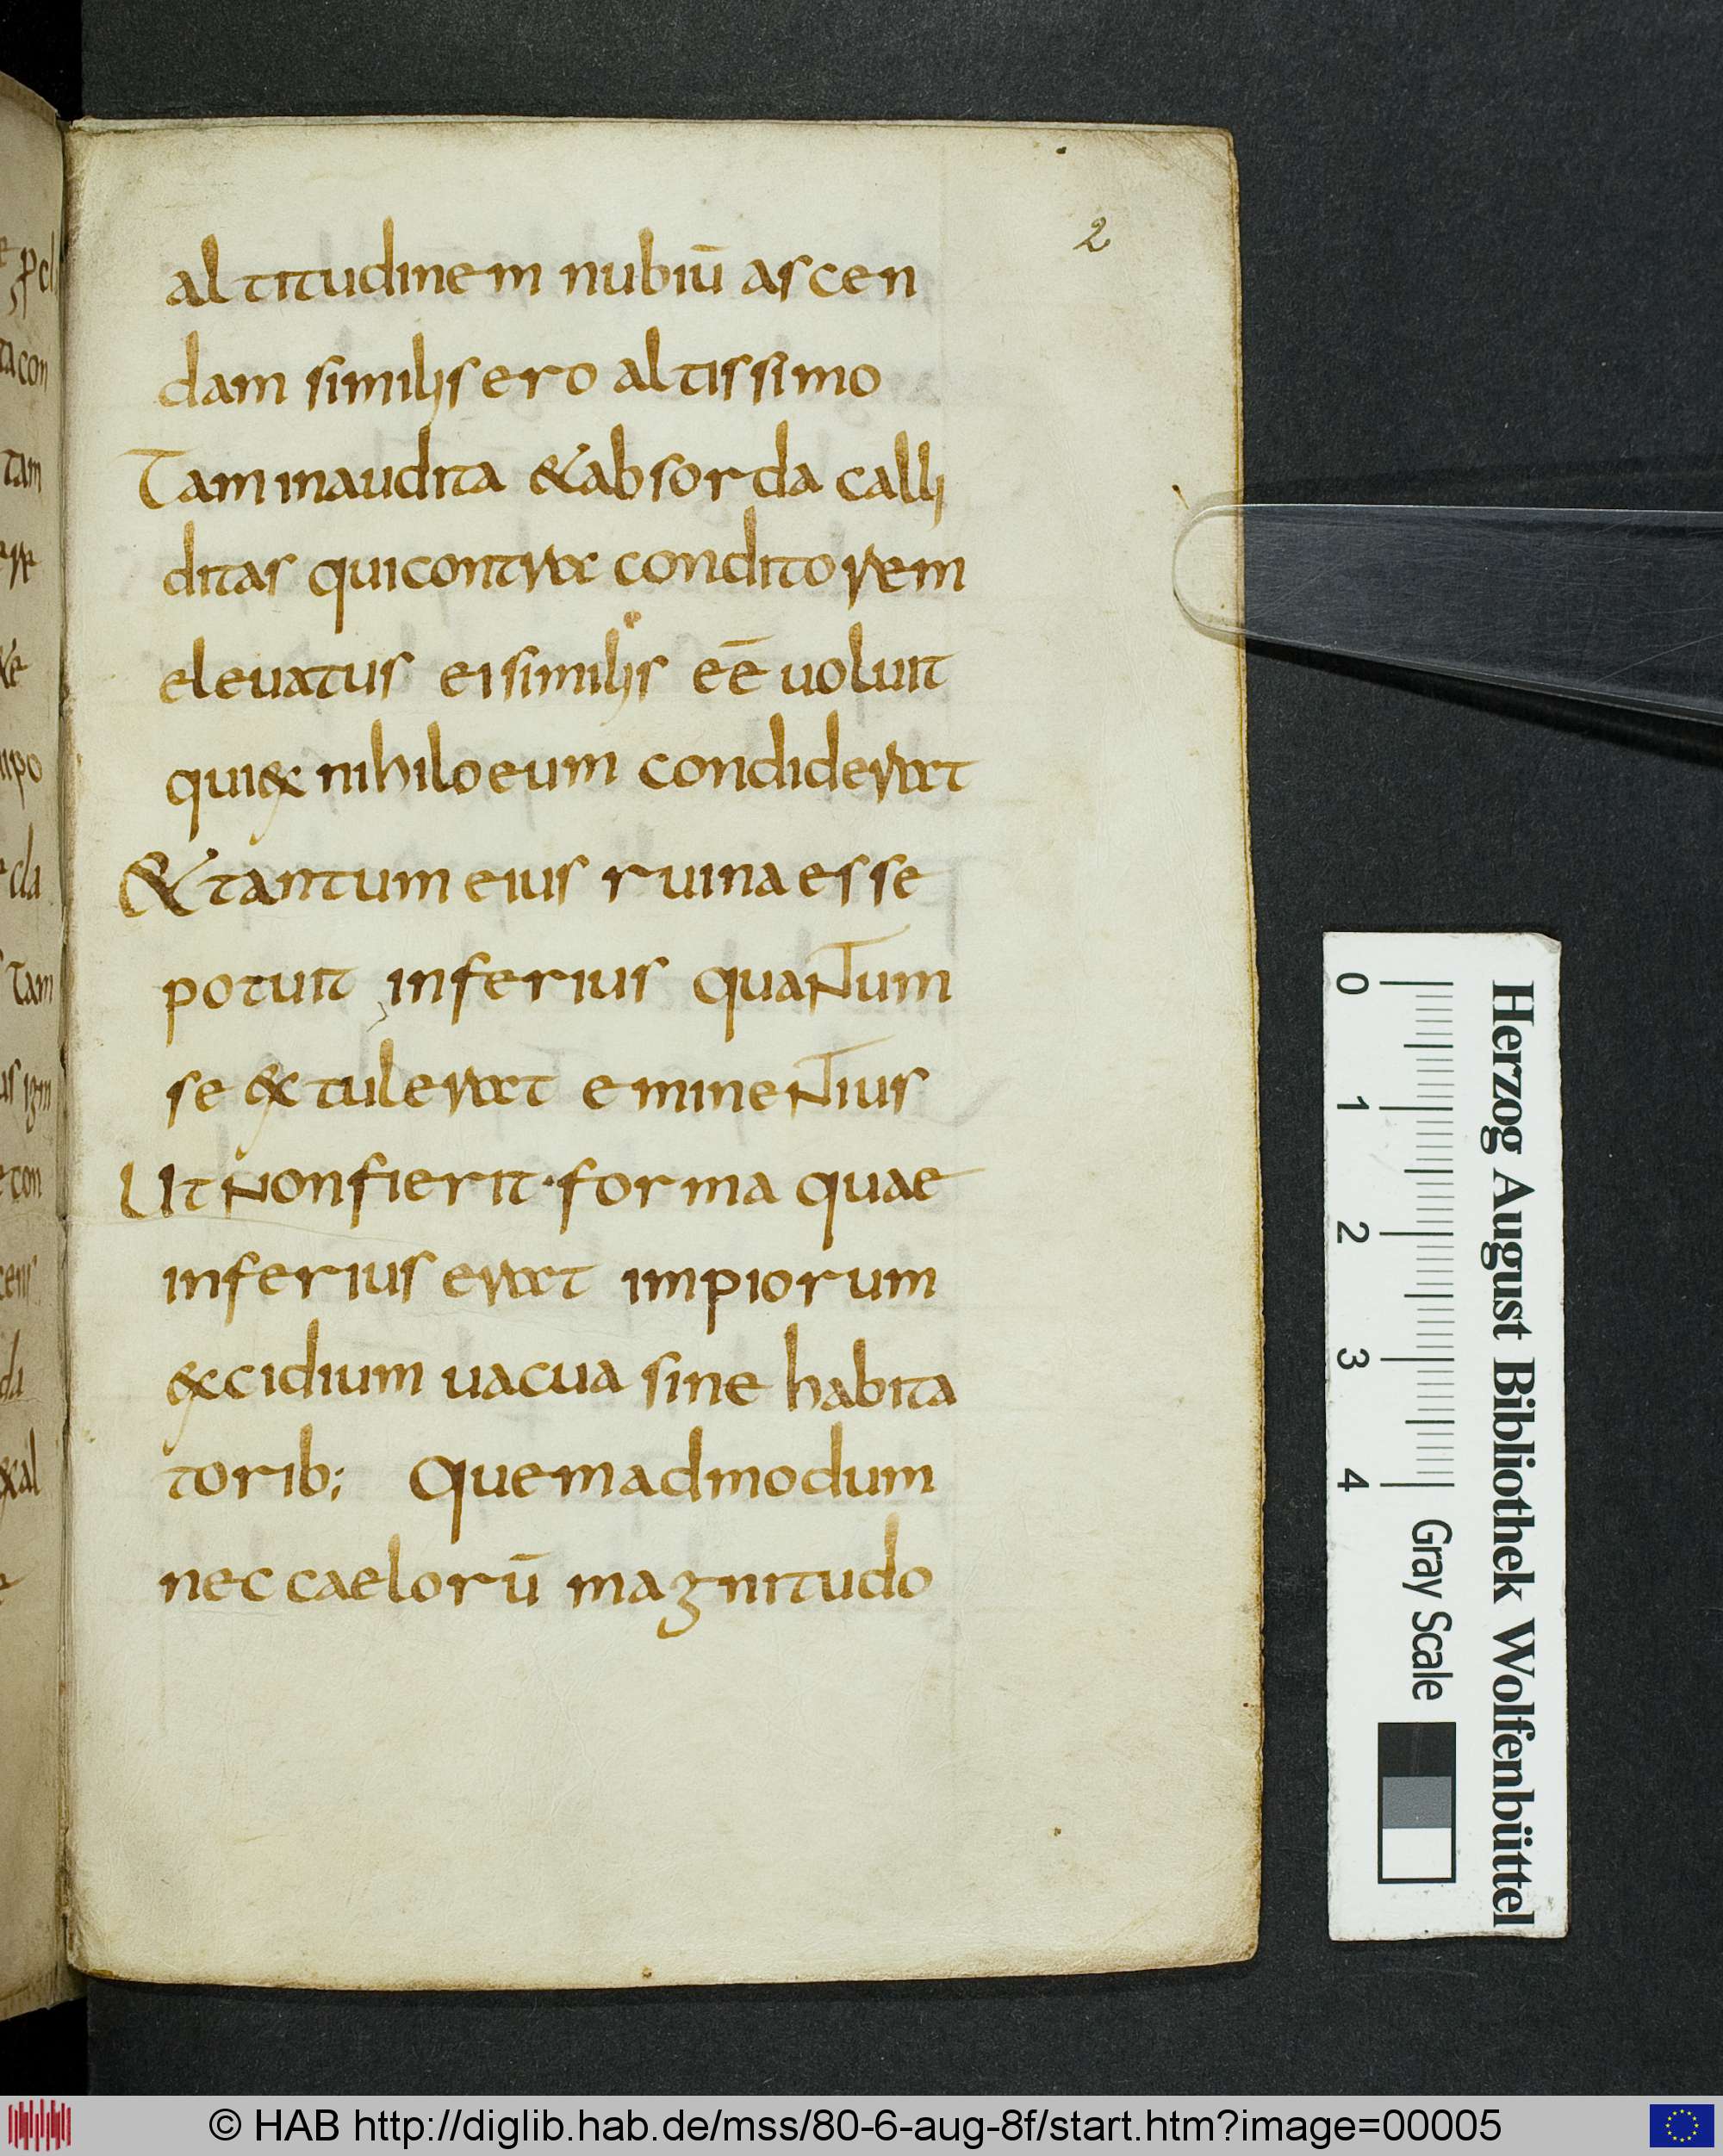 2
altitudinem nubiū ascen
dam similis ero altissimo
Tam inaudita & absorda calli
ditas qui contra conditorem
eleuatus ei similis eē uoluit
qui ex nihilo eum condiderat
& tantum eius ruina esse
potuit inferius quaNTum
se extulerat emineNTius
Ut Non fierit· forma quae
inferius erat impiorum
excidium uacua sine habita
torib; Quemadmodum
nec caelorū magnitudo
0 1 2 3 4 Gray Scale
Herzog August Bibliothek Wolfenbüttel
© HAB http://diglib.hab.de/mss/80-6-aug-8f/start.htm?image=00005